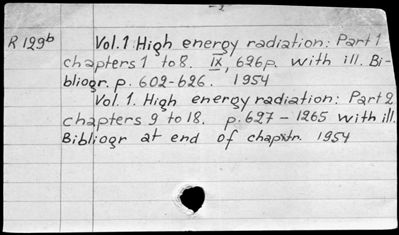 -2
R 129b Vol.1 High energy radiation: Part 1
chapters 1 to 8. IX, 626p. with ill. Bi-
bliogr. p. 602-626. 1954
Vol. 1. High energy radiation: Part 2
chapters 9 to 18. p. 627 - 1265 with ill.
Bibliogr at end of chapitr. 1954